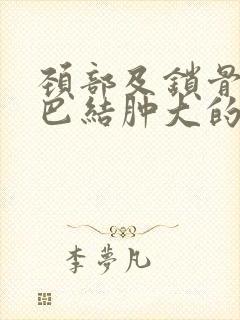 颈部及鎖骨
巴結肿大的
李夢凡